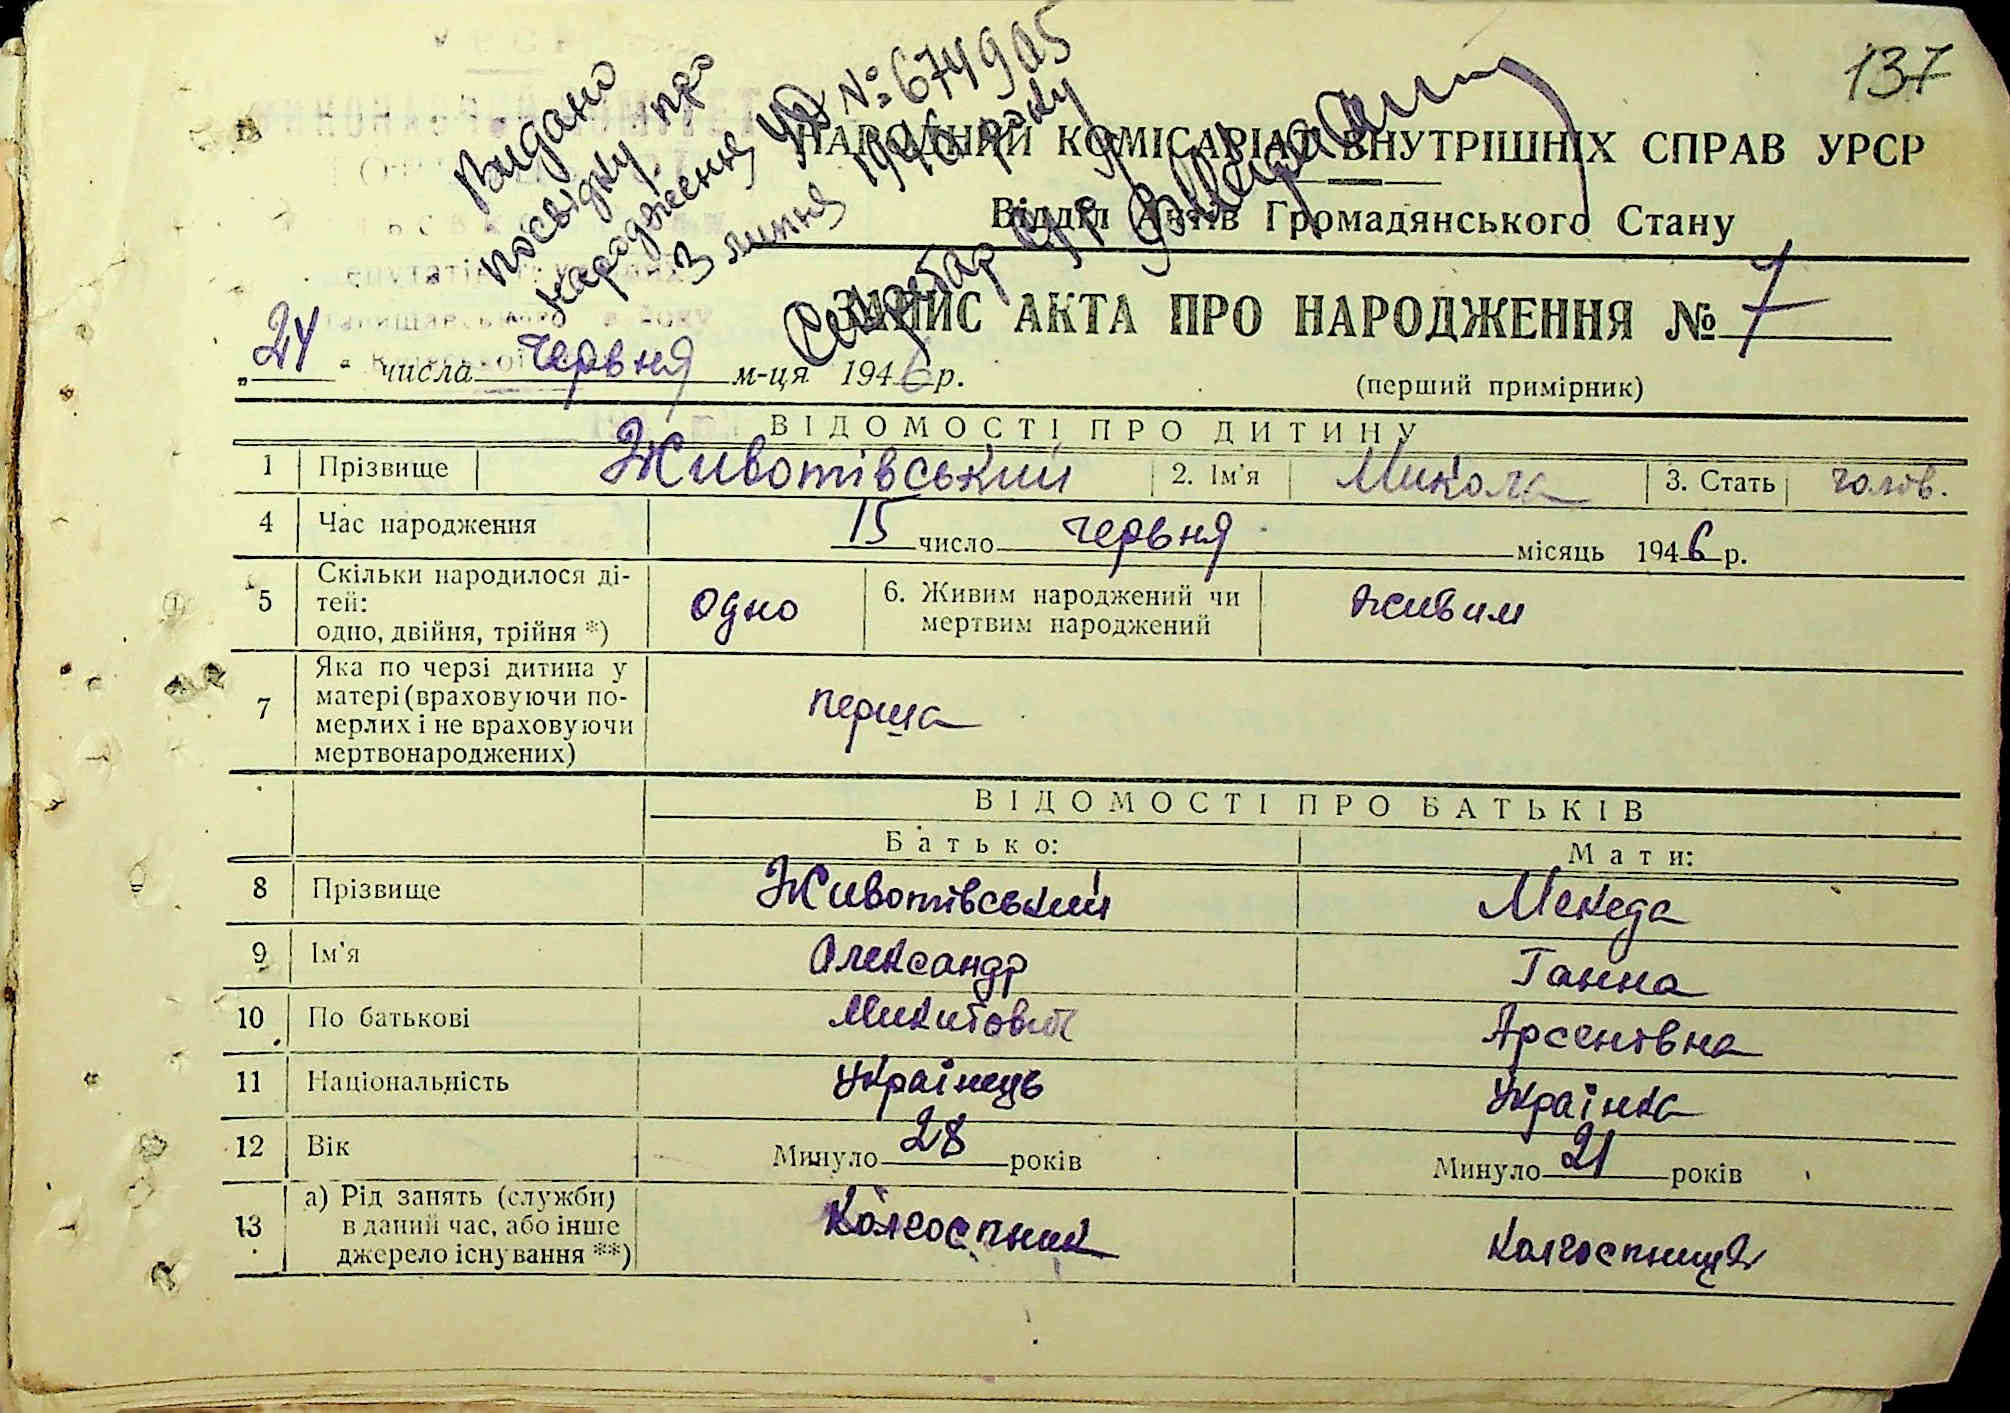 137
Видано
посвідку про
народження УО № 674905
3 липня 1946 року
Секретар с/р
НАРОДНИЙ КОМІСАРІАТ ВНУТРІШНІХ СПРАВ УРСР
Відділ Актів Громадянського Стану
ЗАПИС АКТА ПРО НАРОДЖЕННЯ № 7
„24“ числа червня м-ця 1946 р.
(перший примірник)
ВІДОМОСТІ ПРО ДИТИНУ
1 Прізвище Животівський 2. Ім'я Микола 3. Стать чолов.
4 Час народження 15 число червня місяць 1946 р.
5 Скільки народилося ді-
тей:
одно, двійня, трійня *) одно 6. Живим народжений чи
мертвим народжений живим
7 Яка по черзі дитина у
матері (враховуючи по-
мерлих і не враховуючи
мертвонароджених) перша
ВІДОМОСТІ ПРО БАТЬКІВ
Батько: Мати:
8 Прізвище Животівський Мекеда
9 Ім'я Олександр Ганна
10 По батькові Микитович Арсентівна
11 Національність Українець Українка
12 Вік Минуло 28 років Минуло 21 років
13 а) Рід занять (служби)
в даний час, або інше
джерело існування **) Колгоспник колгоспниця